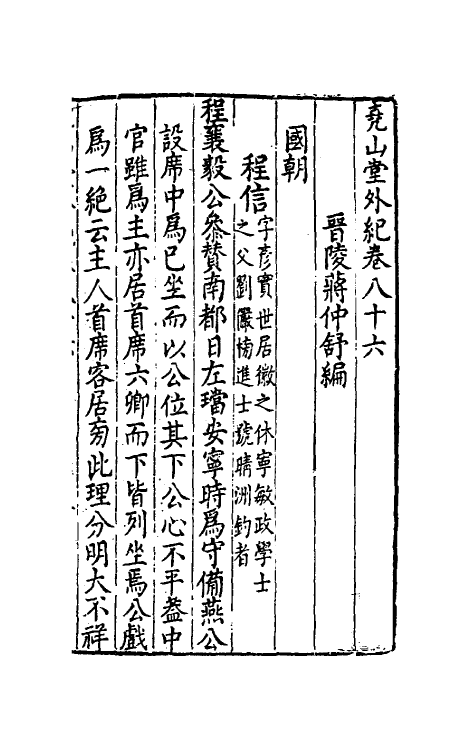 堯山堂外紀卷八十六
晉陵蔣仲舒編
國朝
程信字彥實世居徽之休寧敏政學士
之父劉儼榜進士號晴洲釣者
程襄毅公叅贊南都日左璫安寧時爲守備燕公
設席中爲已坐而以公位其下公心不平葢中
官雖爲主亦居首席六卿而下皆列坐焉公戲
爲一絶云主人首席客居旁此理分明大不祥